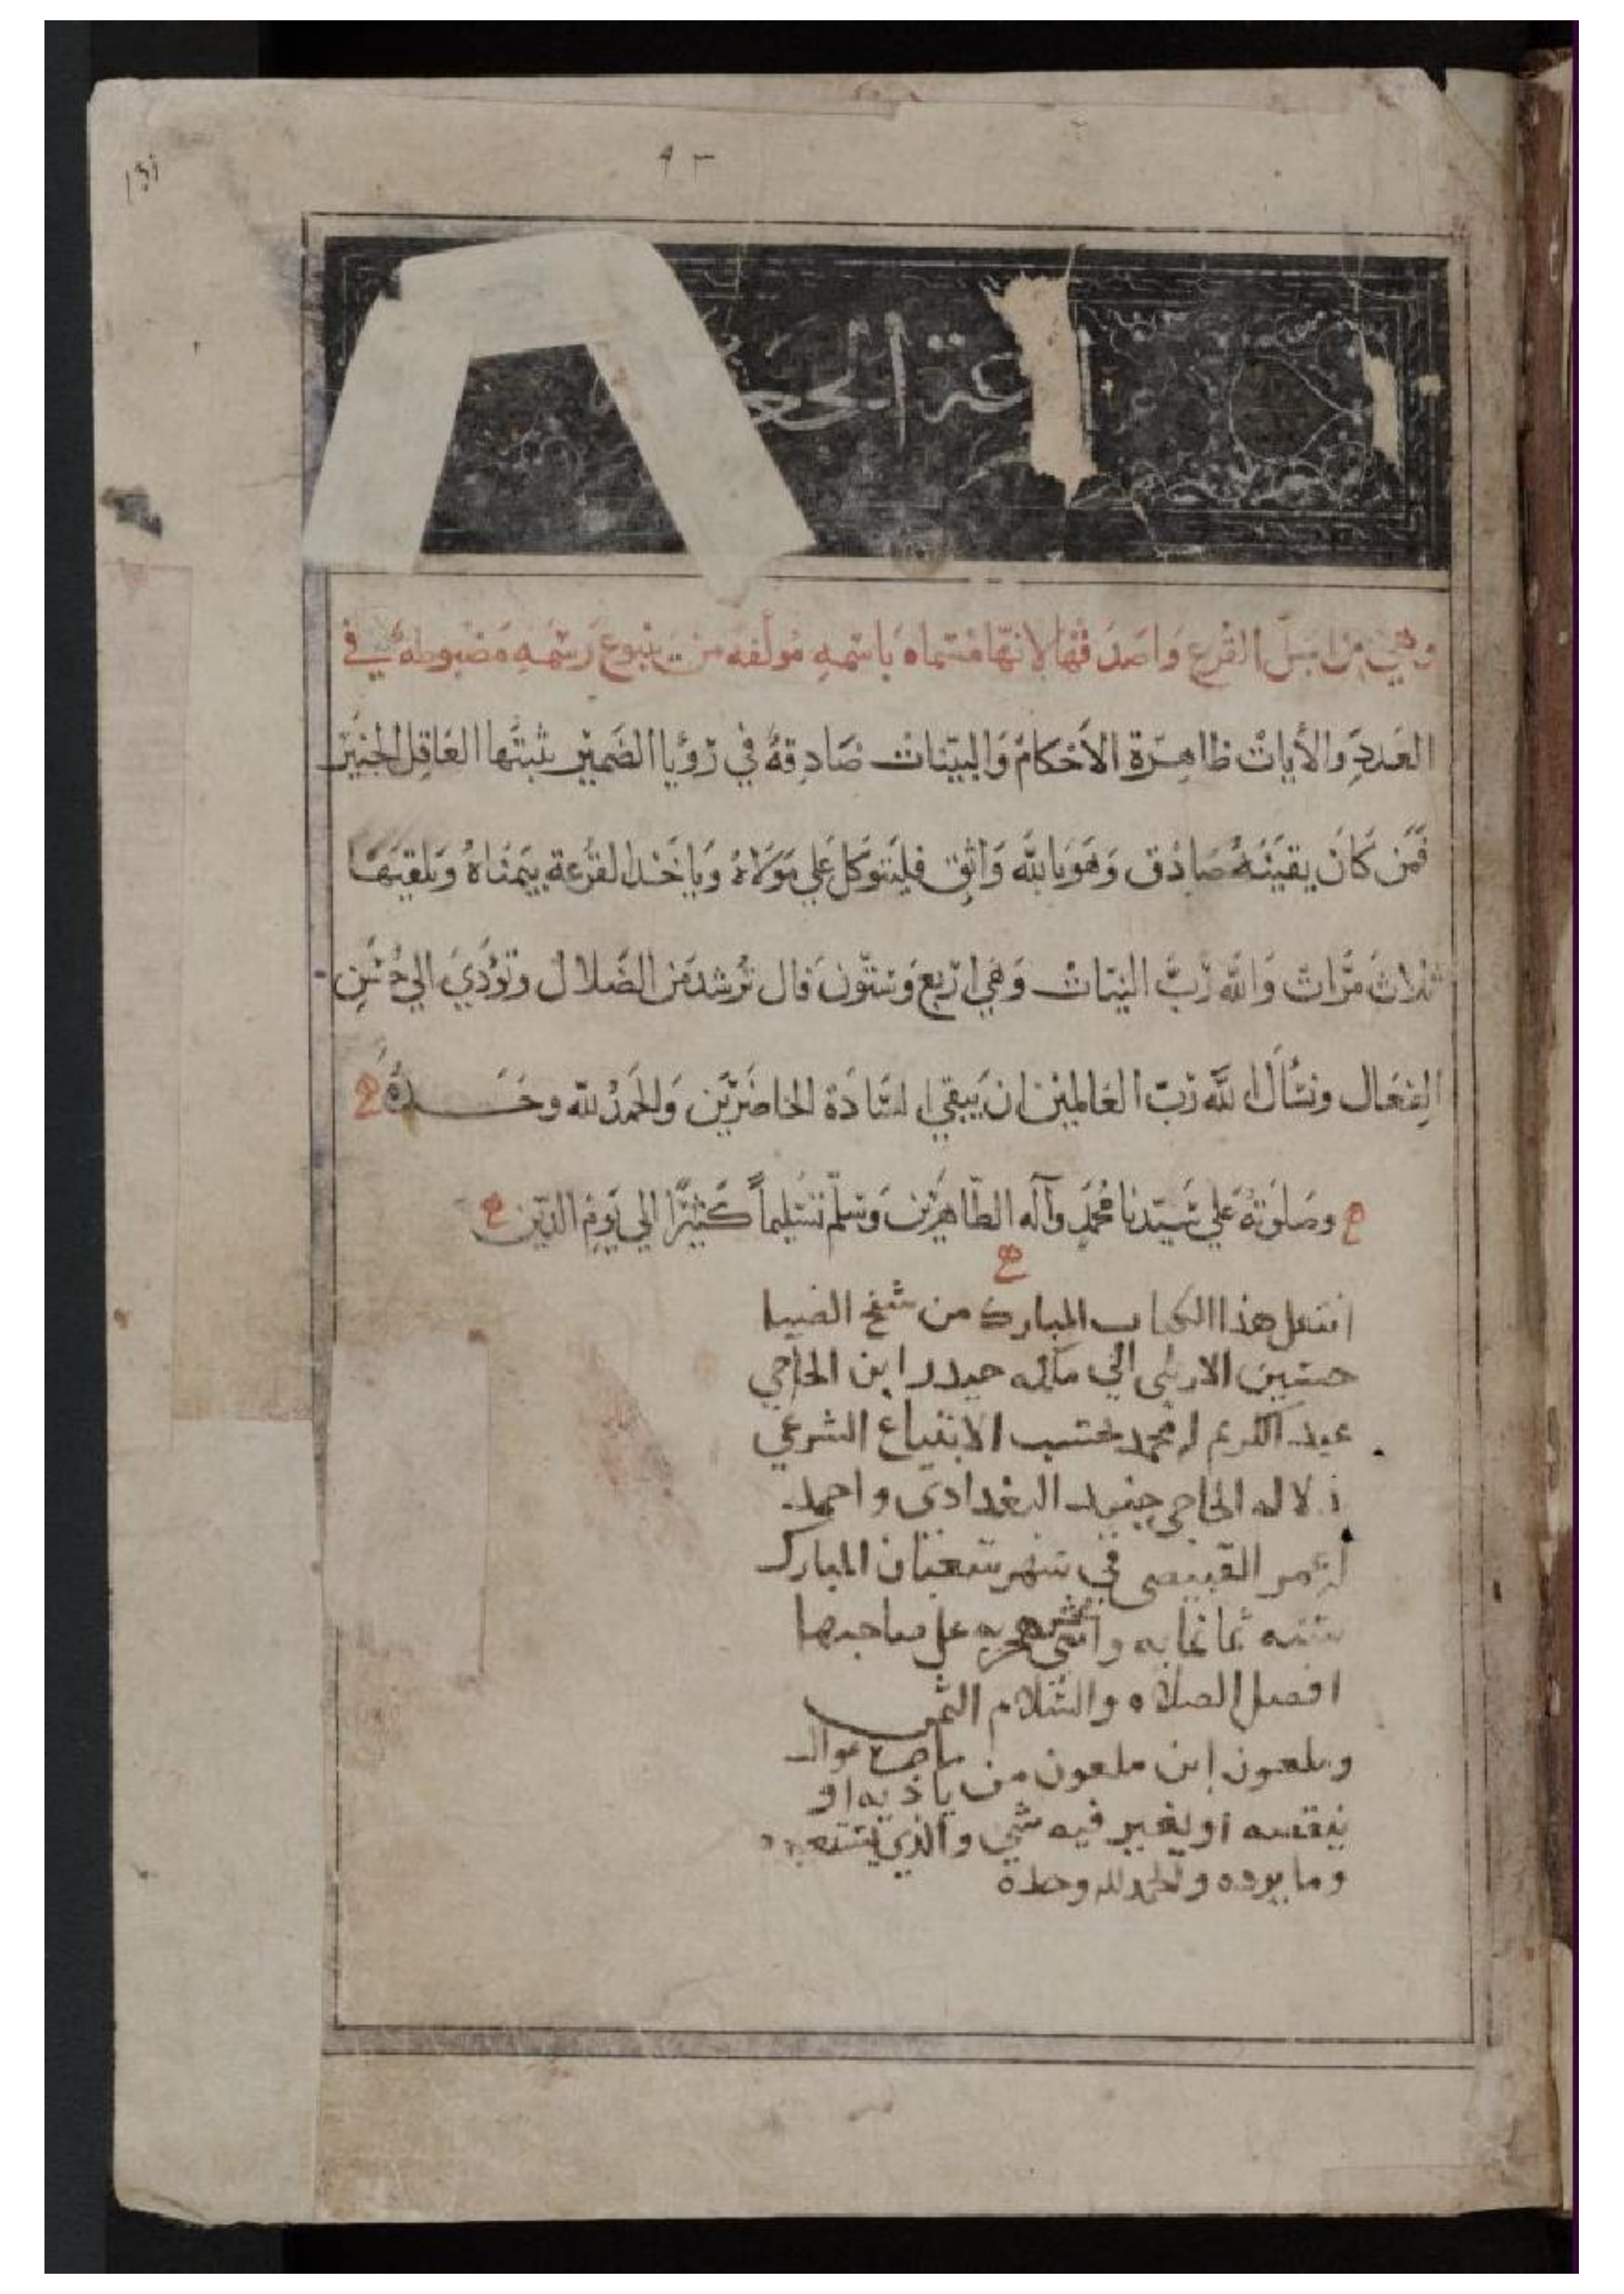 ٩٣
عة الجعـ
وهي من اسَلّ القرع وَاصَدَقها لانّها مسَماه بَاسَمهِ مُولفه من ينبوع رَسْمهِ مَضبوطه في
العَددِ والأياتْ ظاهِرة الاَحْكامْ وَالبيّنات صَادِقةٌ في رُؤيا الضمِير يثبتها العَاقِل الخبير
فمَن كَانَ يقينهُ صَادق وَهوَ باللَّه وَاثِق فليَتوَكل عَلي مَولاهُ وَياخد القرْعة بيَمنَاهُ وَيلقيَها
ثلاثَ مَّرات وَاللَّه رَبَّ النيّاتْ وَهي ارَبع وَستّون فال تُرشد مَن الضَلال وتؤدّي الي حُسْنِ
الفعَال ونسْأل اللَّه رَبّ العَالمين ان يَبقي السَّادَة الحاضَريَن وَالحَمدُ للَّه وحَــــدهُ
وصَلوَتهُ عَلي سَيّدنا مُحمَد وآله الطّاهِرين وَسَلّم تسْليماً كَثيرًا الي يَوم الدّين
انتقل هذا الكتاب المبارك من شيخ الضيا
حسين الاربلي الي مالكه حيدر ابن الحاجي
عبد الكريم ابن محمد بحسب الابتياع الشرعي
دلاله الحاجي جنيد البغدادي واحمد
ابن عمر القبيصي في شهر شعبان المبارك
سنه ثمانمايه واثني عشر هجريه علي صاحبها
افضل الصلاه والسلام الثمن
وملعون ابن ملعون من ياذيه او
ينقصه او يغير فيه شي والذي يستعيره
وما يرده والحمد لله وحده